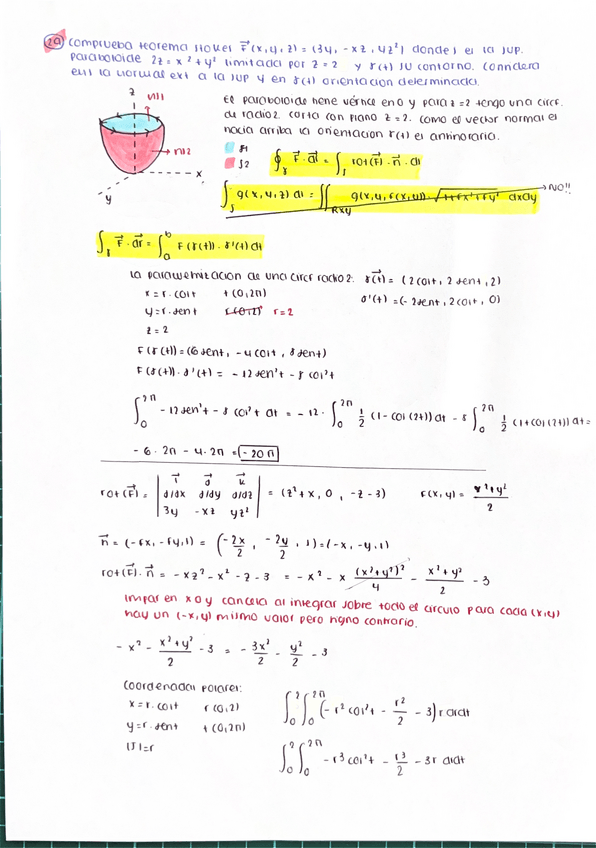 29 comprueba teorema Stokes F⃗(x,y,z) = (3y, -xz, yz²) donde S es la sup.
paraboloide 2z = x² + y² limitada por z = 2 y γ(t) su contorno. Considera
en S la normal ext a la sup y en γ(t) orientacion determinada.
El paraboloide tiene vértice en 0 y para z=2 tengo una circf.
de radio 2. corta con plano z = 2. como el vector normal es
hacia arriba la orientacion γ(t) es antihorario.
z
n⃗1
n⃗2
x
y
S1
S2
∮γ F⃗·dl⃗ = ∫s rot(F⃗)·n⃗·ds
∫s g(x,y,z) ds = ∬Rxy g(x,y,f(x,y))·√1+fx²+fy² dxdy → NO!!
∫γ F⃗·dr⃗ = ∫ₐᵇ F(γ(t))·γ'(t) dt
la parametrizacion de una circf radio 2: γ⃗(t) = (2cost, 2sent, 2)
x = r·cost t(0,2π) γ'(t) = (-2sent, 2cost, 0)
y = r·sent r(0,2) r=2
z = 2
F(γ(t)) = (6sent, -4cost, 8sent)
F(γ(t))·γ'(t) = -12sen²t - 8cos²t
∫₀²π -12sen²t - 8cos²t dt = -12·∫₀²π 1/2 (1-cos(2t)) dt - 8∫₀²π 1/2 (1+cos(2t)) dt =
-6·2π - 4·2π = -20π
rot(F⃗) = | i⃗ j⃗ k⃗ | d/dx d/dy d/dz | 3y -xz yz² | = (z²+x, 0, -z-3) f(x,y) = x²+y²/2
n⃗ = (-fx, -fy, 1) = (-2x/2, -2y/2, 1) = (-x, -y, 1)
rot(F⃗)·n⃗ = -xz² - x² - z - 3 = -x² - x (x²+y²)²/4 - x²+y²/2 - 3
impar en x o y cancela al integrar sobre todo el circulo para cada (x,y)
hay un (-x,y) mismo valor pero signo contrario.
-x² - x²+y²/2 - 3 = -3x²/2 - y²/2 - 3
Coordenadas polares:
x = r·cost r(0,2) ∫₀²∫₀²π (-r²cos²t - r²/2 - 3) r drdt
y = r·sent t(0,2π)
|J| = r ∫₀²∫₀²π -r³cos²t - r³/2 - 3r drdt